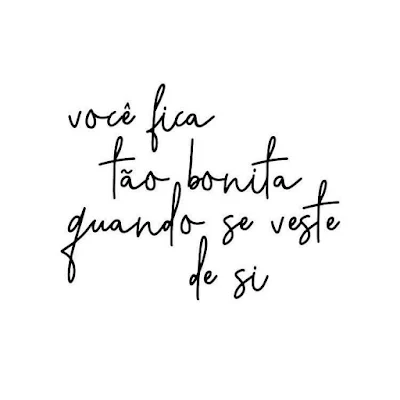 você fica
tão bonita
quando se veste
de si